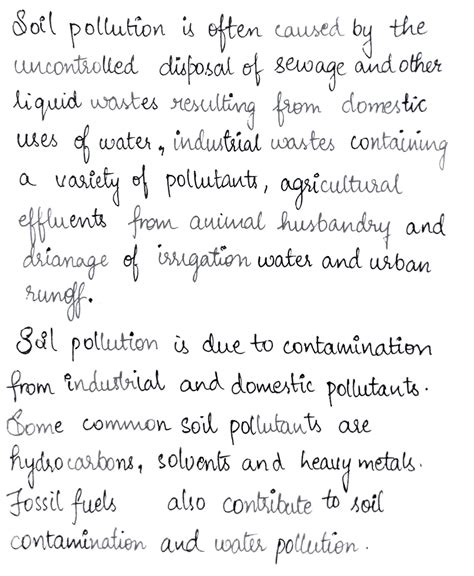 Soil pollution is often caused by the
uncontrolled disposal of sewage and other
liquid wastes resulting from domestic
uses of water, industrial wastes containing
a variety of pollutants, agricultural
effluents from animal husbandry and
drianage of irrigation water and urban
runoff.
Soil pollution is due to contamination
from industrial and domestic pollutants.
Some common soil pollutants are
hydrocarbons, solvents and heavy metals.
Fossil fuels also contribute to soil
contamination and water pollution.